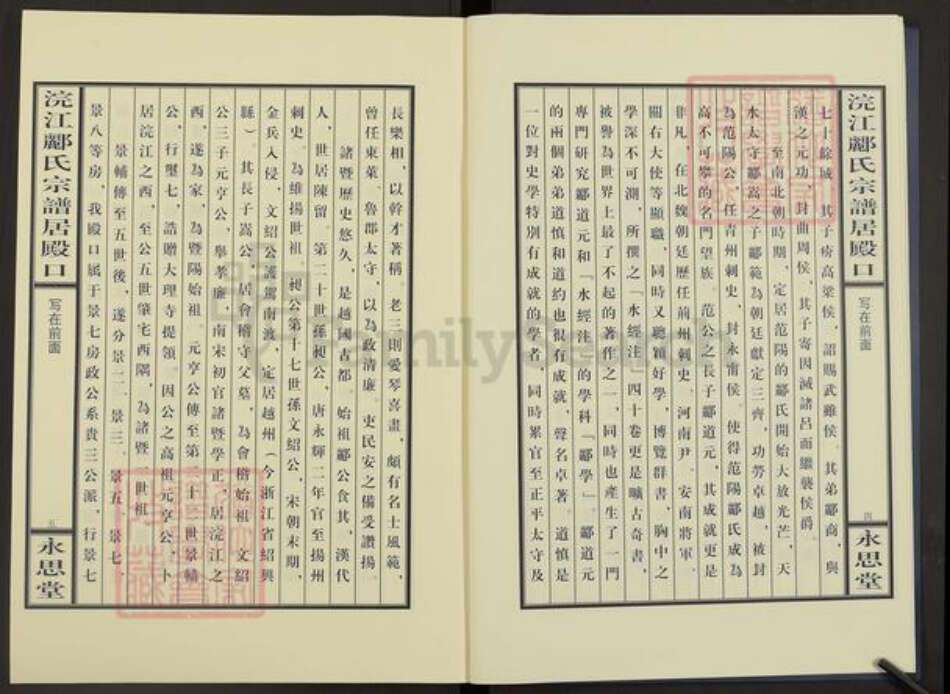 浣江酈氏宗譜居殿口
写在前面
四
永思堂
七十餘城，其子疥高梁侯，詔賜武雖侯，其弟酈商，與
漢之元功，封曲周侯，其子寄因滅諸呂而繼襲侯爵。
至南北朝時期，定居范陽的酈氏開始大放光芒，天
水太守酈嵩之子酈範為朝廷獻定三齊，功勞卓越，被封
為范陽公，任青州刺史，封永甯侯，使得范陽酈氏成為
高不可攀的名門望族。范公之長子酈道元，其成就更是
非凡，在北魏朝廷歷任荊州刺史、河南尹、安南將軍、
關右大使等顯職，同時又聰穎好學，博覽群書，胸中之
學深不可測，所撰之「水經注」四十卷更是曠古奇書，
被譽為世界上最了不起的著作之一，同時也產生了一門
專門研究酈道元和「水經注」的學科「酈學」。酈道元
的兩個弟弟道慎和道約也很有成就，聲名卓著。道慎是
一位對史學特別有成就的學者，同時累官至正平太守及
長樂相，以幹才著稱。老三則愛琴喜畫，頗有名士風範，
曾任東萊、魯郡太守，以為政清廉、吏民安之備受讚揚。
諸暨歷史悠久，是越國古都，始祖酈公食其，漢代
人，世居陳留。第二十世孫昶公，唐永輝二年官至揚州
刺史，為維揚世祖。昶公第十七世孫文紹公，宋朝末期，
金兵入侵，文紹公護駕南渡，定居越州（今浙江省紹興
縣）。其長子嵩公，居會稽守父墓，為會稽始祖。文紹
公三子元亨公，舉孝廉，南宋初官諸暨學正，居浣江之
西，遂為家，為暨陽始祖。元亨公傳至第二十世景輔
公，行壐七，誥贈大理寺提領，因公之高祖元亨公，卜
居浣江之西，至公五世肇宅西隅，為諸暨一世祖。
景輔傳至五世後，遂分景一二、景三、景五、景七、
景八等房，我殿口属于景七房政公系貴三公派，行景七
浣江酈氏宗譜居殿口
写在前面
五
永思堂
FamilySearch